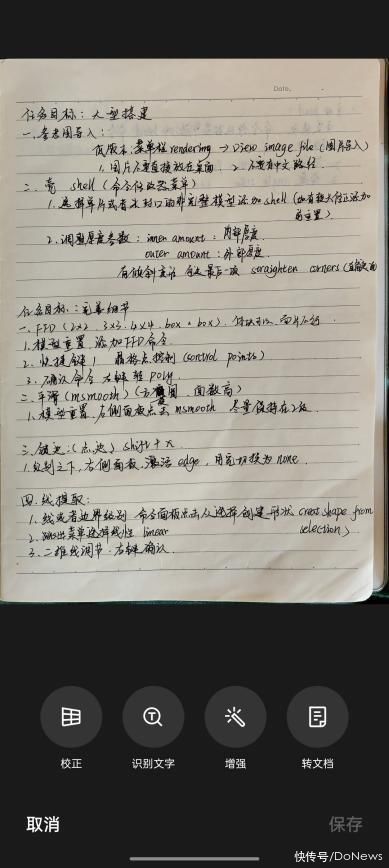 Date.
任务目标：大型搭建
一、参考图导入：
低版本：菜单栏 rendering → View image file (图片导入)
1. 图片不要直接放在桌面 2. 不要有中文路径
二、壳 shell (命令修改器菜单)
1. 选择单片或者未封口的非完整模型添加 shell
2. 调整厚度参数：inner amount：内部厚度
outer amount：外部厚度.
有倾斜 最后一项 straighten corners
任务目标：完善细节
一、FFD (2x2 3x3. 4x4. box . box).
1. 模型重置 添加FFD命令.
2. 快捷键 1 晶格点控制 (control points)
3. 确认命令 右键转 poly.
二、平滑 (msmooth) ( 圆 面数高)
1. 模型重置. 右侧面板点击 msmooth 尽量保持在2级.
三、锁边：(点、边) shift + x
1. 右侧面板, 激活 edge, 用完切换为 none.
四、线提取：
1. 线或者边界级别 命令面板点击从选择创建形状 creat shape from
selection)
2. 跳出菜单选择线性 linear
3. 二维线调节. 右键确认.
校正 识别文字 增强 转文档
取消 保存
快传号/DoNews